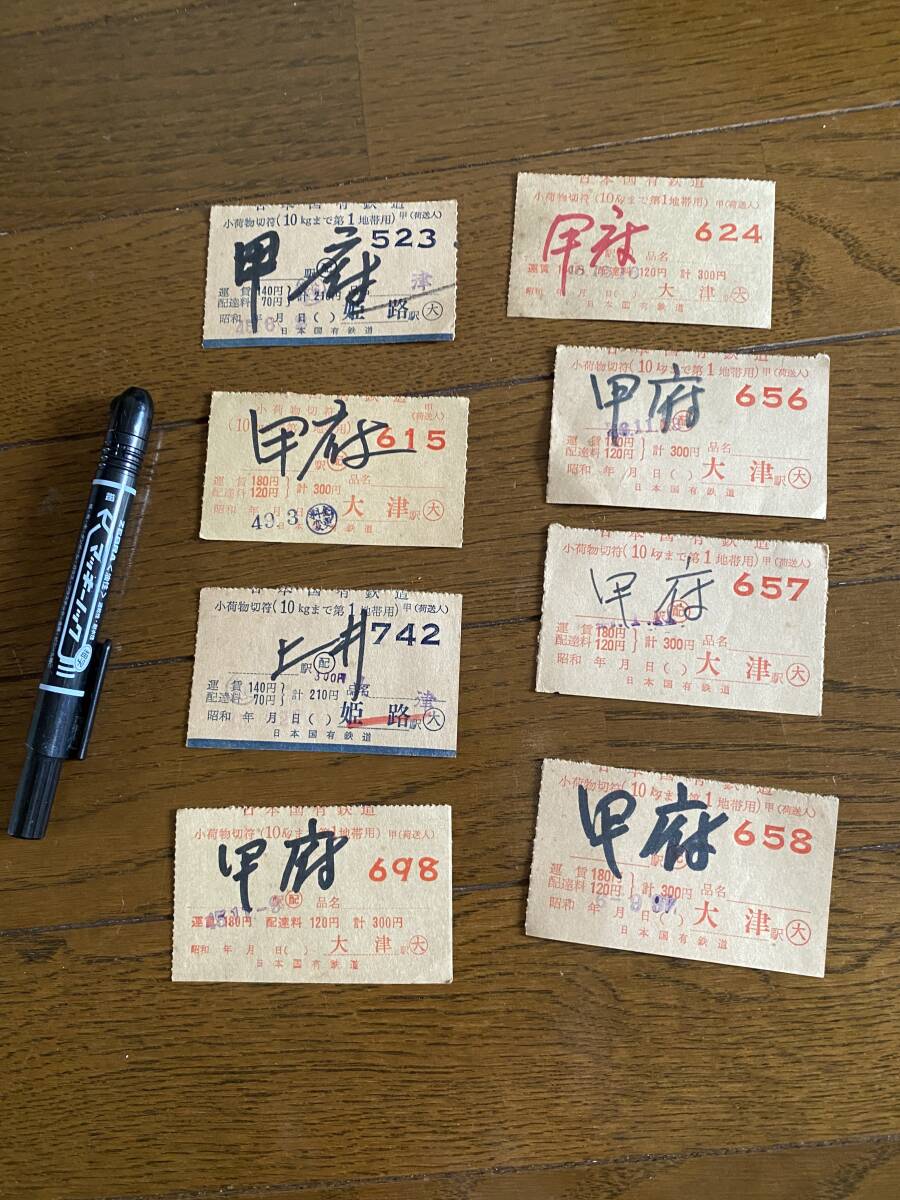 小荷物切符(10kgまで第1地帯用)甲(荷送人)
甲府 523
駅 配
運賃 140円
配達料 70円 計 210円
津
昭和 年 月 日( ) 姫路駅 大
日本国有鉄道
日本国有鉄道
小荷物切符(10kgまで第1地帯用)甲(荷送人)
甲府 624
品名
配達料 120円 計 300円
昭和 年 月 日 大津駅 大
日本国有鉄道
小荷物切符 甲(荷送人)
甲府 615
駅 配 品名
運賃 180円
配達料 120円 計 300円
昭和 年 月 日( ) 大津駅 大
49.3 料金変更
日本国有鉄道
小荷物切符(10kgまで第1地帯用)甲(荷送人)
甲府 656
配
運賃 180円
配達料 120円 計 300円 品名
昭和 年 月 日( ) 大津駅 大
日本国有鉄道
小荷物切符(10kgまで第1地帯用)甲(荷送人)
上井 742
駅 配
300円
運賃 140円
配達料 70円 計 210円
津
昭和 年 月 日( ) 姫路駅 大
日本国有鉄道
小荷物切符(10kgまで第1地帯用)甲(荷送人)
甲府 657
駅 配
運賃 180円
配達料 120円 計 300円 品名
昭和 年 月 日( ) 大津駅 大
日本国有鉄道
日本国有鉄道
小荷物切符(10kgまで第1地帯用)甲(荷送人)
甲府 698
駅 配 品名
運賃 180円 配達料 120円 計 300円
昭和 年 月 日( ) 大津駅 大
日本国有鉄道
小荷物切符(10kgまで第1地帯用)甲(荷送人)
甲府 658
駅 配
運賃 180円
配達料 120円 計 300円 品名
昭和 年 月 日( ) 大津駅 大
日本国有鉄道
マッキーノック
細字
ZEBRA